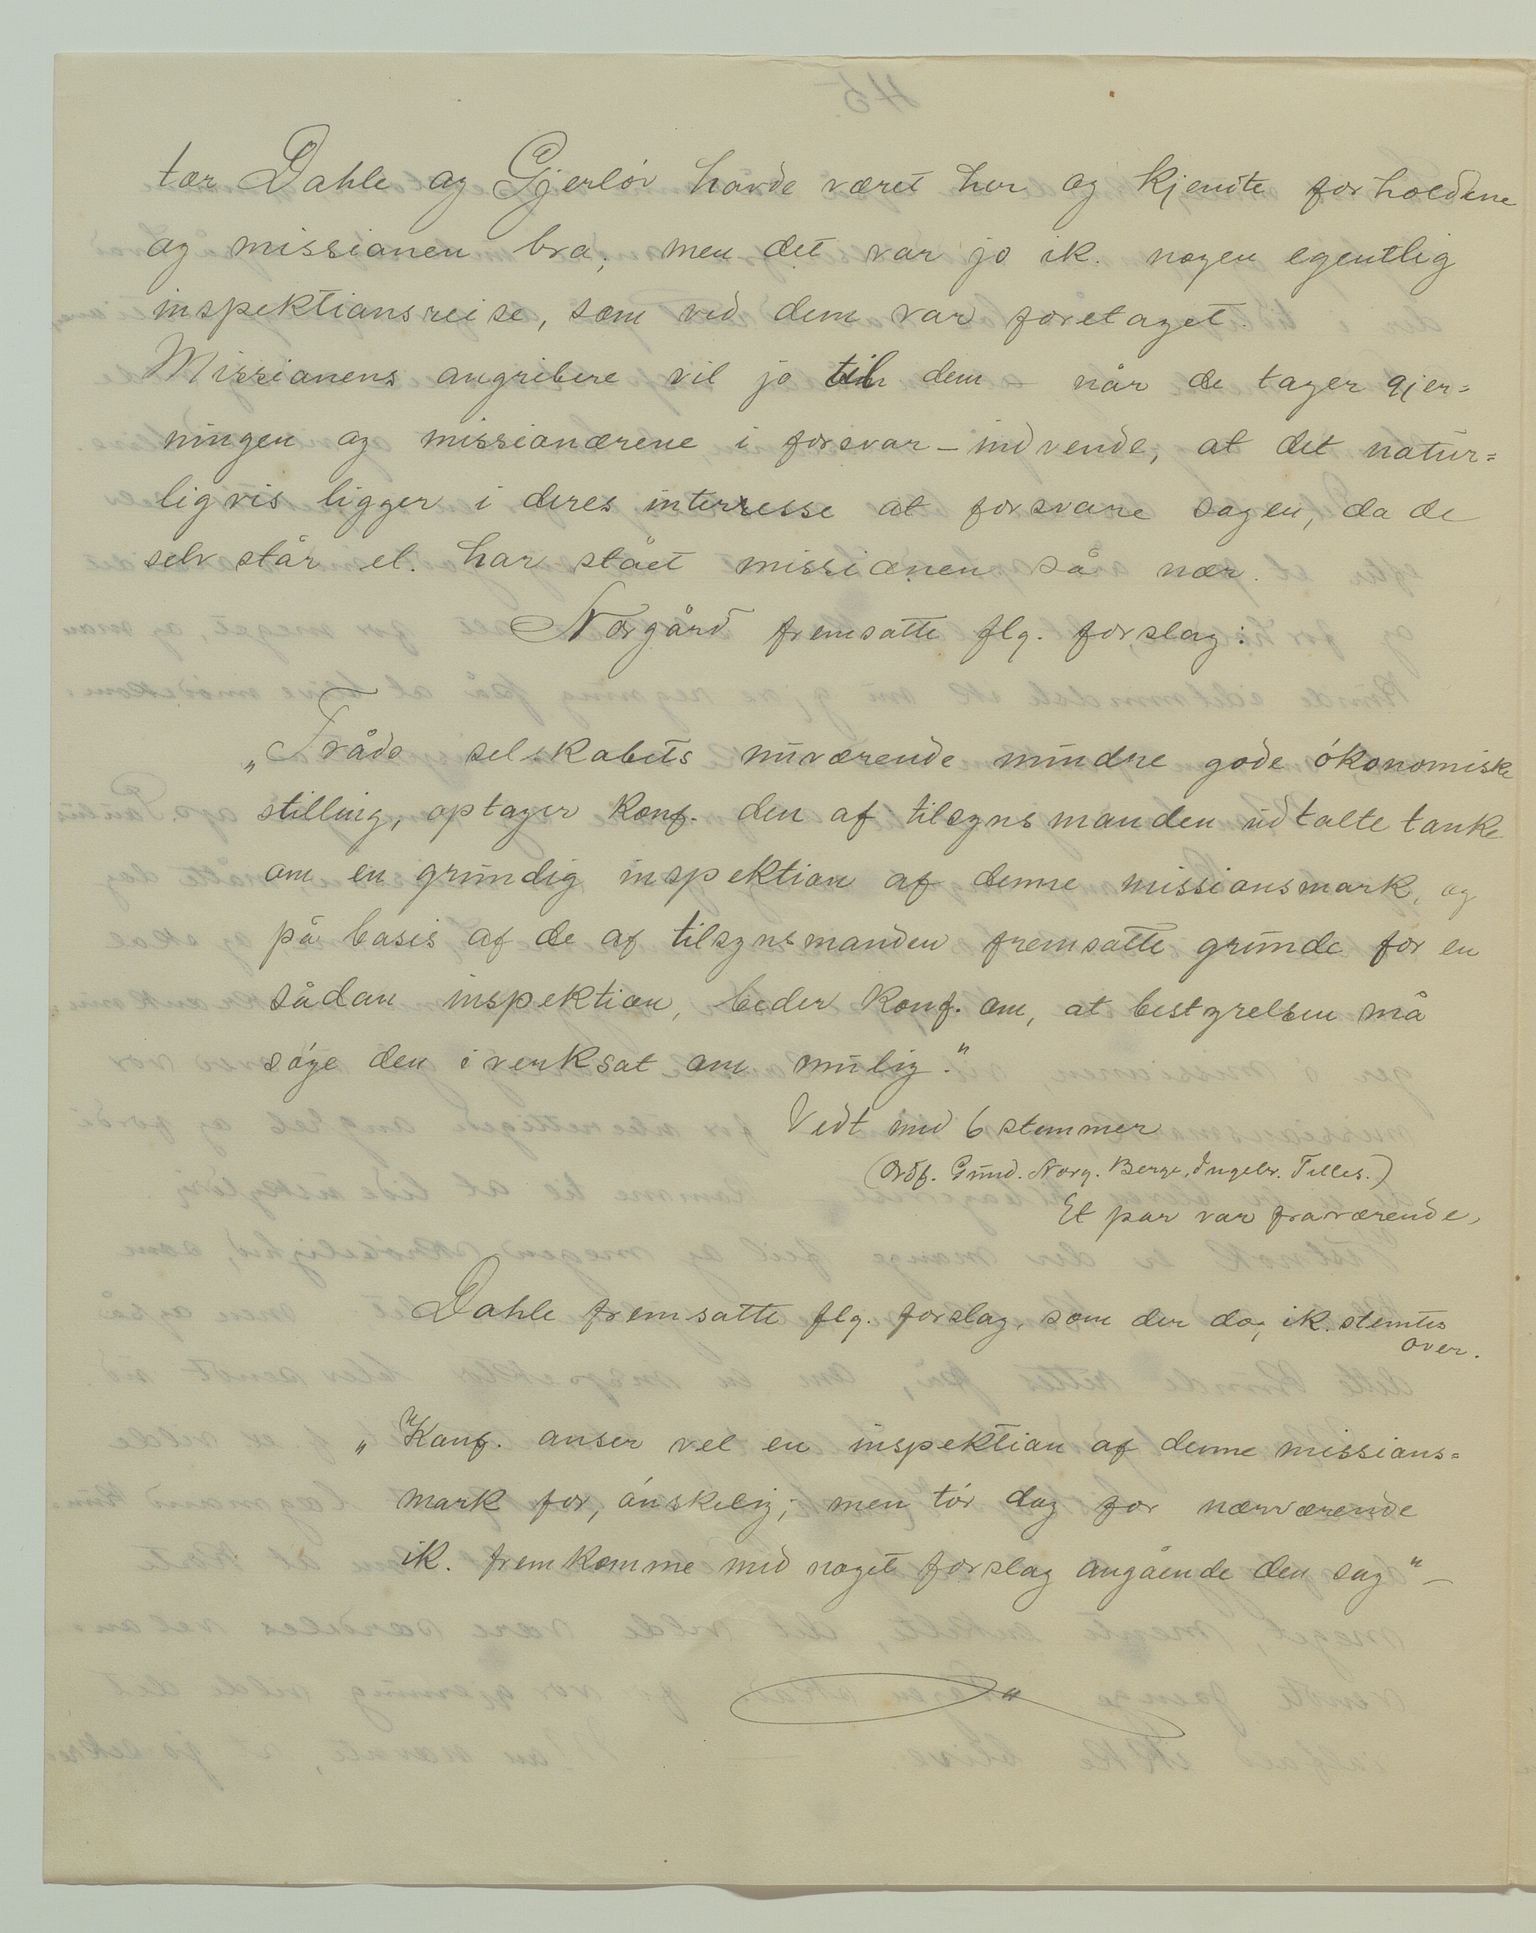 tær Dahle og Gjerløv havde været her og kjendte forholdene
og missionen bra; men det var jo ik. nogen egentlig
inspektionsreise, som ved dem var foretaget.
Missionens angribere vil jo til dem – når de tager gjer=
ningen og missionærene i forsvar – indvende, at det natur=
ligvis ligger i deres interresse at forsvare sagen, da de
selv står el. har stået missionen så nær.
Norgård fremsatte flg. forslag:
„Tråds selskabets nuværende mindre gode økonomiske
stilling, optager Konf. den af tilsynsmanden udtalte tanke
om en grundig inspektion af denne missionsmark, og
på basis af de af tilsynsmanden fremsatte grunde for en
sådan inspektion, beder Konf. om, at bestyrelsen må
søge den iverksat om mulig."
Vedt med 6 stemmer
(Ordf. Gund. Norg. Berge, Ingebr. Telles.)
Et par var fraværende,
Dahle fremsatte flg. forslag, som der dog ik. stemtes
over.
„Konf. anser vel en inspektion af denne missions=
mark for, ønskelig; men tør dog for nærværende
ik. fremkomme med noget forslag angående den sag" –